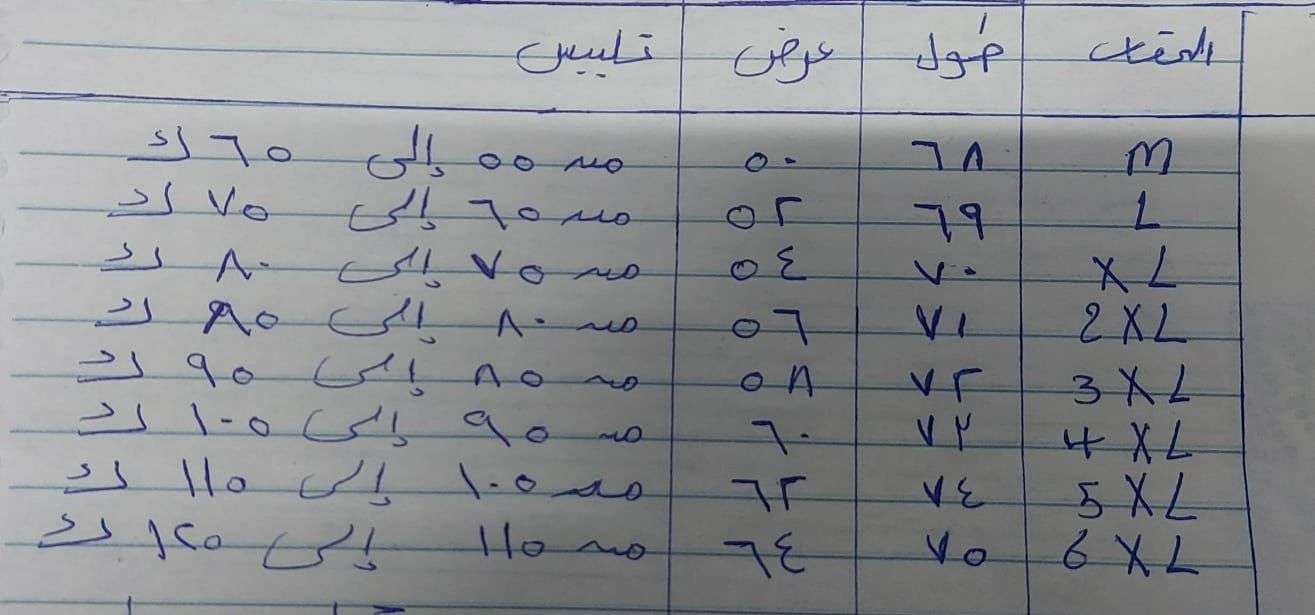 المقاس طول عرض تلبيس
M ٦٨ ٥٠ من ٥٥ إلى ٦٥ ك
L ٦٩ ٥٢ من ٦٥ إلى ٧٥ ك
XL ٧٠ ٥٤ من ٧٥ إلى ٨٠ ك
2XL ٧١ ٥٦ من ٨٠ إلى ٨٥ ك
3XL ٧٢ ٥٨ من ٨٥ إلى ٩٥ ك
4XL ٧٣ ٦٠ من ٩٥ إلى ١٠٥ ك
5XL ٧٤ ٦٢ من ١٠٥ إلى ١١٥ ك
6XL ٧٥ ٦٤ من ١١٥ إلى ١٢٥ ك